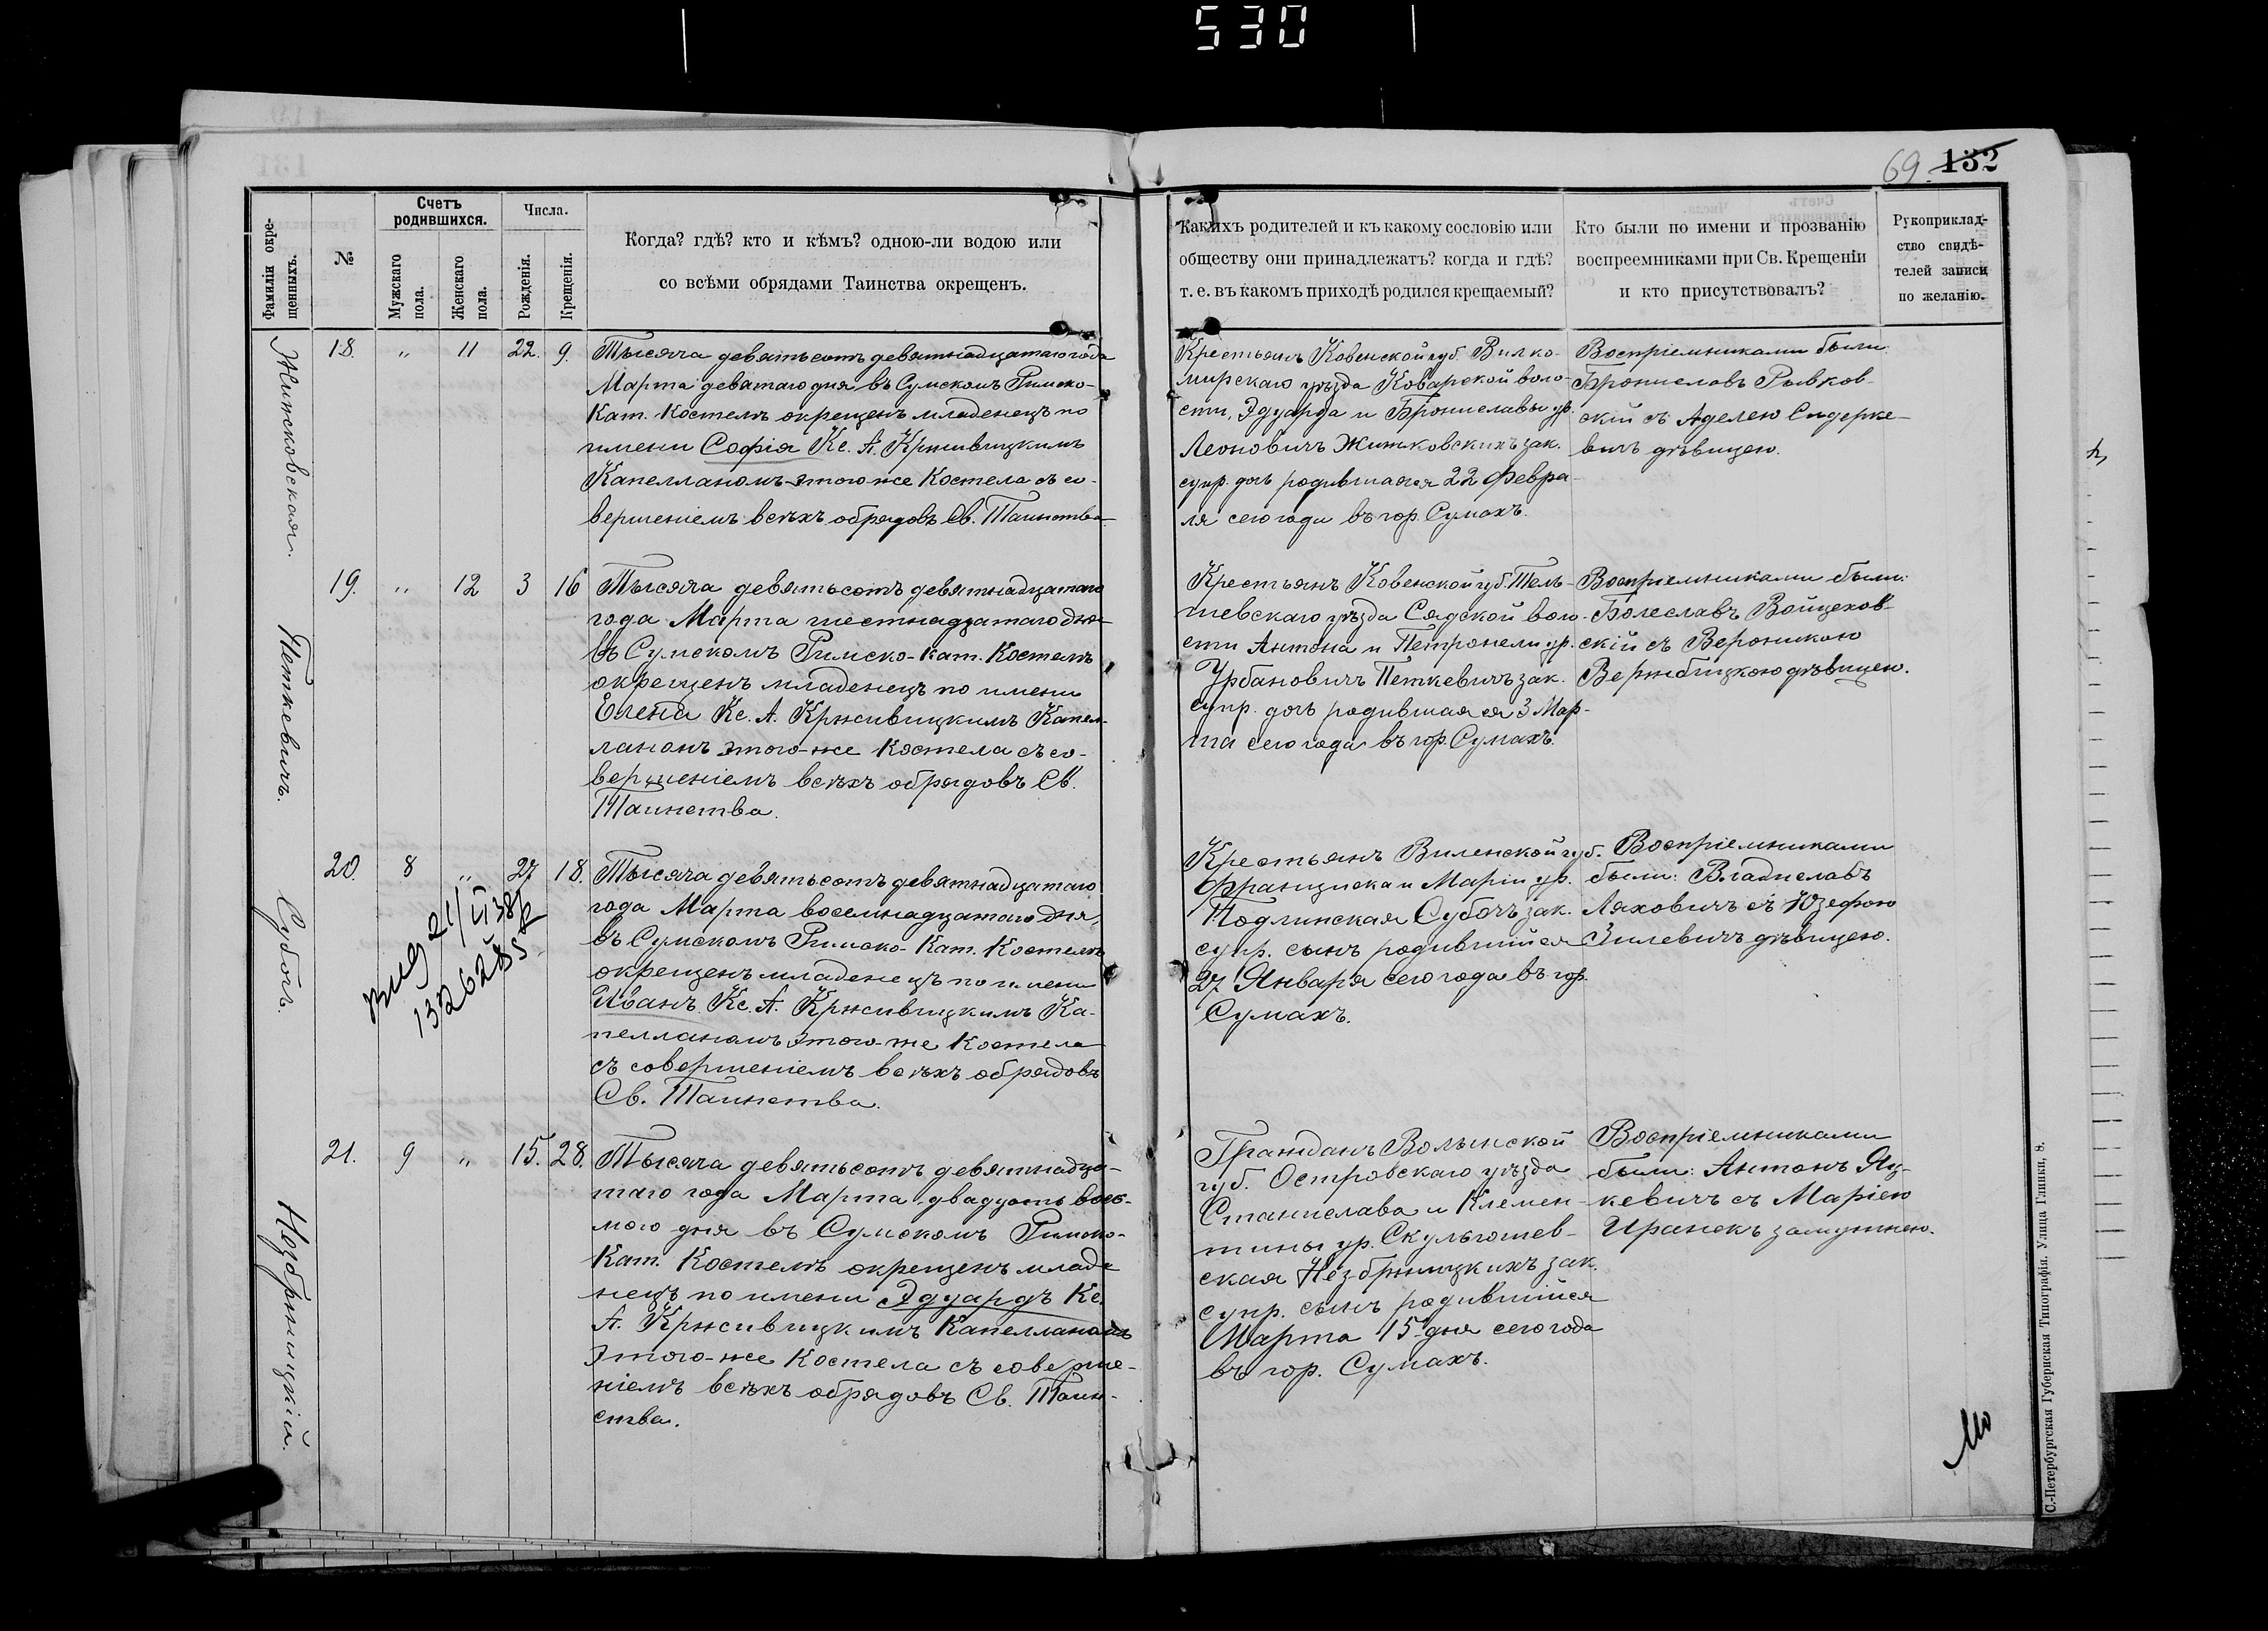 530
69. 132
Фамиліи окре-
щенныхъ.
№
Счетъ
родившихся.
Мужскаго
пола.
Женскаго
пола.
Числа.
Рожденія.
Крещенія.
Когда? гдѣ? кто и кѣмъ? одною-ли водою или
со всѣми обрядами Таинства окрещенъ.
Какихъ родителей и къ какому сословію или
обществу они принадлежатъ? когда и гдѣ?
т. е. въ какомъ приходѣ родился крещаемый?
Кто были по имени и прозванію
воспреемниками при Св. Крещеніи
и кто присутствовалъ?
Рукоприклад-
ство свидѣ-
телей записи
по желанію.
Житковская.
18. " 11 22. 9.
Тысяча девятьсотъ девятнадцатаго года
Марта девятаго дня въ Сумскомъ Римско-
Кат. Костелѣ окрещенъ младенецъ по
имени Софія Кс. А. Кржсивицкимъ
Капелланомъ этого-же Костела съ со-
вершеніемъ всѣхъ обрядовъ Св. Таинства
Крестьянъ Ковенской губ Вилко-
мирскаго уѣзда Коварской воло-
сти, Эдуарда и Брониславы ур.
Леоновичъ Житковскихъ зак.
супр. дочь родившаяся 22 Февра-
ля сего года въ гор. Сумахъ.
Воспріемниками были
Брониславъ Рывков-
скій съ Аделею Сидерке-
вичъ дѣвицею.
Петкевичъ.
19. " 12 3 16
Тысяча девятьсотъ девятнадцатаго
года Марта шестнадцатаго дня
въ Сумскомъ Римско-Кат. Костелѣ
окрещенъ младенецъ по имени
Елена Кс. А. Кржсивицкимъ Капел-
ланомъ этого-же Костела съ со-
вершеніемъ всѣхъ обрядовъ Св.
Таинства.
Крестьянъ Ковенской губ. Тель-
шевскаго уѣзда Сядской воло-
сти Антона и Петронели ур.
Урбановичъ Петкевичъ зак.
супр. дочь родившаяся 3 Мар-
та сего года въ гор. Сумахъ.
Воспріемниками были:
Болеславъ Войцехов-
скій съ Вероникою
Вержбицкою дѣвицею.
Суботъ.
20. 8 " 27 18.
Тысяча девятьсотъ девятнадцатаго
года Марта восемнадцатаго дня,
въ Сумскомъ Римско-Кат. Костелѣ
окрещенъ младенецъ по имени
Иванъ Кс. А. Кржсивицкимъ Ка-
пелланомъ этого-же Костела
съ совершеніемъ всѣхъ обрядовъ
Св. Таинства.
Крестьянъ Виленской губ.
Франциска и Маріи ур.
Подлинская Суботъ зак.
супр. сынъ родившійся
27 Января сего года въ гор.
Сумахъ.
Воспріемниками
были: Владиславъ
Ляховичъ съ Юзефою
Зилевичъ дѣвицею.
Незбржицкій.
21. 9 " 15. 28.
Тысяча девятьсотъ девятнадца-
таго года Марта двадцать вось-
мого дня въ Сумскомъ Римско-
Кат. Костелѣ окрещенъ младе
нецъ по имени Эдуардъ Кс.
А. Кржсивицкимъ Капелланомъ
этого-же Костела съ соверше-
ніемъ всѣхъ обрядовъ Св. Таин-
ства.
Гражданъ Волынской
губ. Островскаго уѣзда
Станислава и Клемен-
тины ур. Скульгошев-
ская Незбржицкихъ зак.
супр. сынъ родившійся
Марта 15 дня сего года
въ гор. Сумахъ.
Воспріемниками
были: Антонъ Яц-
кевичъ съ Маріею
Иранекъ замужнею.
С.-Петербургская Губернская Типографія. Улица Глинки, 8.